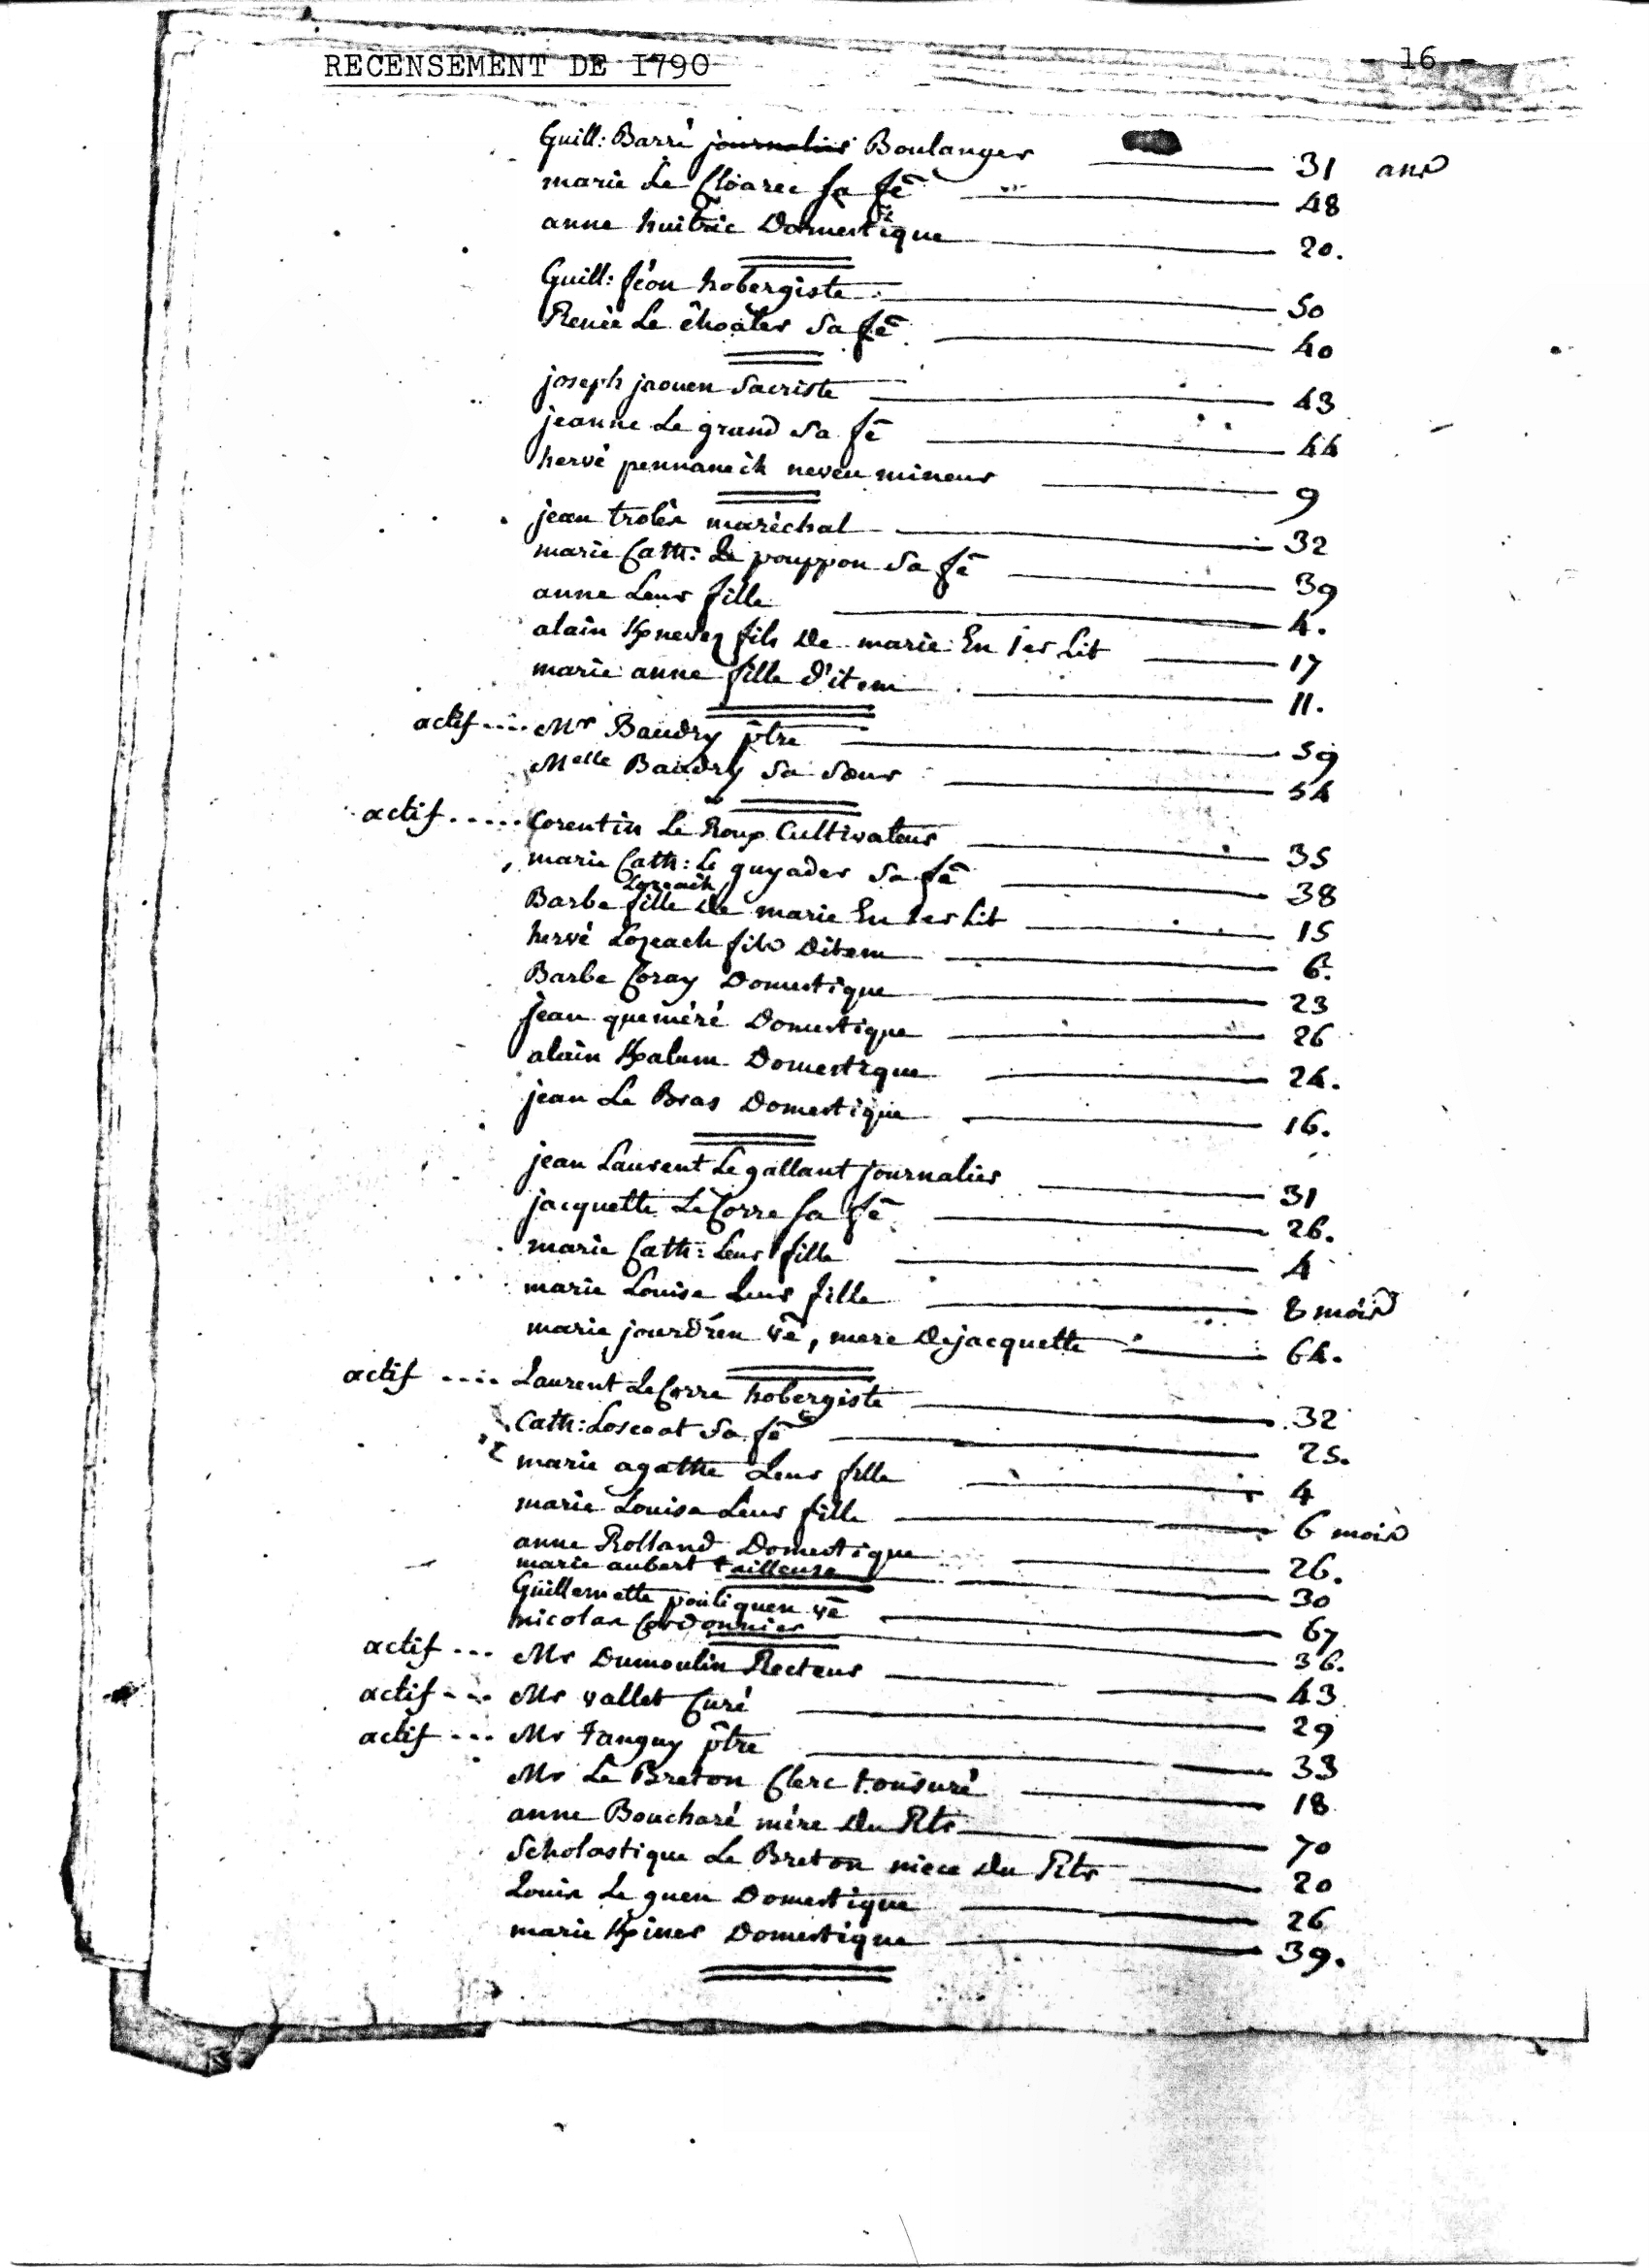 RECENSEMENT DE I790
- 16 -
Guill: Barré journalier Boulanger 31 ans
marie Le Cloarec sa fe 48
anne huitric Domestique 20.
Guill: féon hobergiste 50
Renée Le choâler sa fe 40
joseph jaouen Sacriste 43
jeanne Le grand sa fe 44
hervé pennaneih neveu mineur 9
jean trolés maréchal 32
marie Cath: Le pouppon sa fe 39
anne Leur fille 4.
alain Kpnevez fils De marie En 1er Lit 17
marie anne fille d'item 11.
actif .... Mr Baudry ptre 59
Melle Baudry sa sœur 54
actif ..... Corentin Le Roux Cultivateur 35
marie Cath: Le guyader sa fe 38
Lozeach
Barbe fille De marie En 1er Lit 15
hervé Lozeach fils Ditem 6.
Barbe Coray Domestique 23
jean queméré Domestique 26
alain Kpalum Domestique 24.
jean Le Bras Domestique 16.
jean Laurent Le gallant journalier 31
jacquette Le Corre sa fe 26.
marie Cath: Leur fille 4
marie Louise Leur fille 8 mois
marie jourdren ve, mere De jacquette 64.
actif .... Laurent Le Corre hobergiste 32
Cath: Loscoat sa fe 25.
marie agathe Leur fille 4
marie Louise Leur fille 6 mois
anne Rolland Domestique 26.
marie aubert tailleuse 30
Guillemette pouliquen ve 67
nicolas Cordonnier 36.
actif ... Mr Dumoulin Recteur 43
actif ... Mr vallet Curé 29
actif ... Mr tanguy ptre 33
Mr Le Breton Clerc tonsuré 18
anne Boucharé mére Du Rtr 70
Scholastique Le Breton niece Du Rtr 20
Louis Le guen Domestique 26
marie Kpiner Domestique 39.